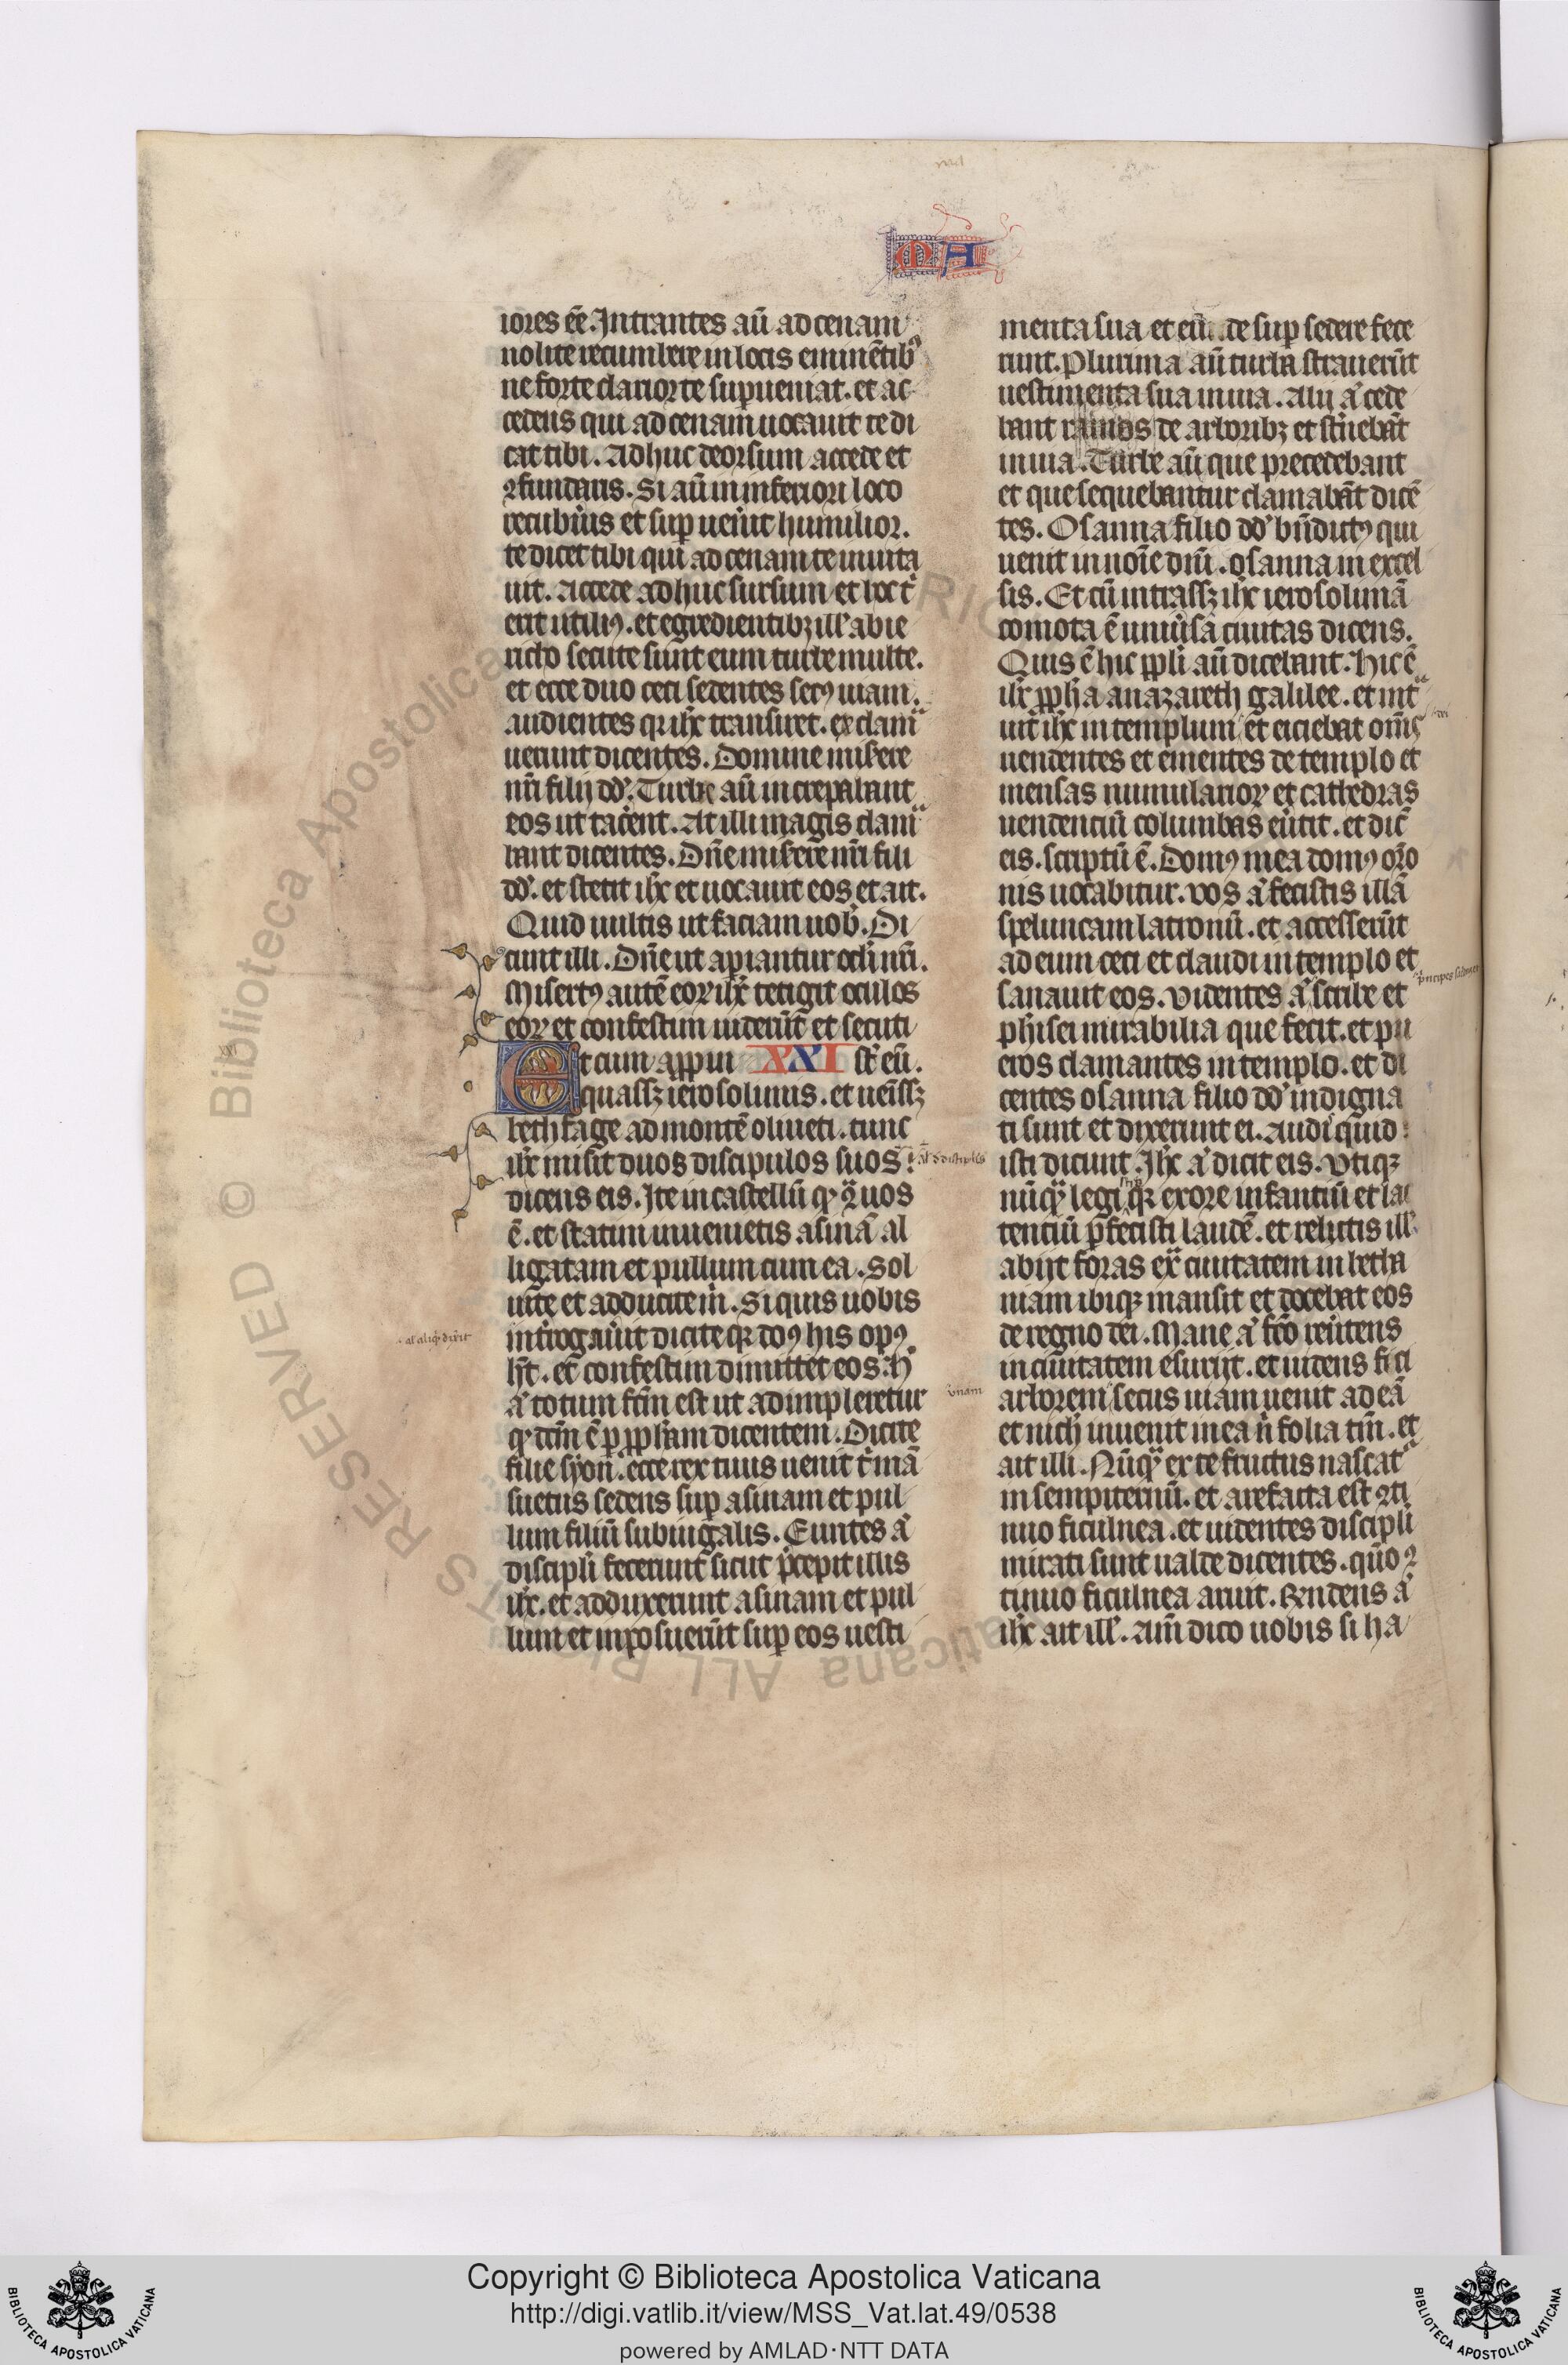 MA
iores eē. Intrantes aū ad cenam
nolite recumbere in locis eminētibꝰ
ne forte clarior te supueniat. et ac
cedens qui ad cenam uocauit te di
cat tibi. Adhuc deorsum accede et
ꝯfundaris. Si aū in inferiori loco
recubiũs et sup uenẽit humilior.
te dicet tibi qui ad cenam te inuita
uit. Accede adhuc sursum et hoc t̾
erit utiliꝰ. et egredientibꝫ ill̾ abie
richo secute sunt eum turbe multe.
et ecce duo ceci sedentes secꝰ uiam.
audientes qr ihc̄ transiret. exclam
uerunt dicentes. Domine misere
nr̄i filij dd̾. Turbe aū increpabant
eos ut tac̾ent. At illi magis clam
bant dicentes. Dn̄e miserere nr̄i fili
dd̾. et stetit ihc̄ et uocauit eos et ait.
Quid uultis ut faciam uob̾. Di
cunt illi. Dn̄e ut apiantur ocl̾i nr̄i.
Misertꝰ autē eoꝝ ihc̄ tetigit oculos
eoꝝ et confestim uiderūt et secuti
Et cum appīn XXI st̄ eū.
quassꝫ ierosolimis. et uenissꝫ
bethfage ad montē oliueti. tunc
ihc̄ misit duos discipulos suos.
dicens eis. Ite in castellū qͦ ꝯͣ uos
ē. et statim inuenietis asinā al
ligatam et pullum cum ea. Sol
uite et adducite m̾. Si quis uobis
int̾rogau̾it dicite qr dn̄s his opꝰ
al aliqͥd dixit
hꝫ̄. et confestim dimittet eos. h̾
aͧ totum fc̄m est ut adimpleretur
qͦ dc̄m ē p pph̄am dicentem. Dicite
filie syon. ecce rex tuus uenit t̾ mā
suetus sedens sup asinam et pul
lum filiū subiugalis. Euntes aͧ
discipli fecerunt sicut p̾cepit illis
ihc̄. et adduxerunt asinam et pul
lum et inposuerūt sup eos uesti
menta sua et eū de sup sedere fece
runt. Plurima aū turba strauerūt
uestimenta sua in uia. Alij aͧ cede
bant ramos de arboribꝫ et st̾nebāt
in uia. Turbe aū que precedebant
et que sequebantur clamabāt dicē
tes. Osanna filio dd̾ bn̄dictꝰ qui
uenit in noīe dn̄i. osanna in excel
sis. Et cū intrassꝫ ihc̄ ierosolimā
comota ē uniu̾sa ciuitas dicens.
Quis ē hic ppli aū dicebant. Hic ē
ihc̄ pph̄a a nazareth galilee. et int
uit ihc̄ in templum et eiciebat om̄s
uendentes et ementes de templo et
mensas numularioꝝ et cathedras
uendenciū columbas eu̾tit. et dic̄
eis. scriptū ē. Domꝰ mea domꝰ orō
nis uocabitur. uos aͧ fecistis illā
speluncam latronū. et accesserūt
ad eum ceci et claudi in templo et
sanauit eos. Videntes aͧ scribe et
ph̾isei mirabilia que fecit. et pu
eros clamantes in templo. et di
centes osanna filio dd̾ indigna
ti sunt et dixerunt ei. Audi quid
isti dicunt. Ihc̄ aͧ dicit eis. Vtiqꝫ
nūqͣ legi qr ex ore infantiū et lac
tenciū p̾fecisti laudē. et relictis ill̾
abijt foras exͣ ciuitatem in betha
niam ibiqꝫ mansit et docebat eos
de regno dei. Mane aͧ fc̄o reu̾tens
in ciuitatem esurijt. et uidens fici
vnam
arborem secus uiam uenit ad eā
et nich̾ inuenit in ea n̾ folia tm̄. et
ait illi. Nūqͣ ex te fructus nascat̾
in sempiternū. et arefacta est ꝯti
nuo ficulnea. et uidentes discipli
mirati sunt ualde dicentes. quō ꝯ
tinuo ficulnea aruit. Rn̄dens aͧ
ihc̄ ait ill̾. Am̄ dico uobis si ha
Copyright © Biblioteca Apostolica Vaticana
http://digi.vatlib.it/view/MSS_Vat.lat.49/0538
powered by AMLAD·NTT DATA
BIBLIOTECA APOSTOLICA VATICANA
BIBLIOTECA APOSTOLICA VATICANA
© Biblioteca Apostolica Vaticana ALL RIGHTS RESERVED